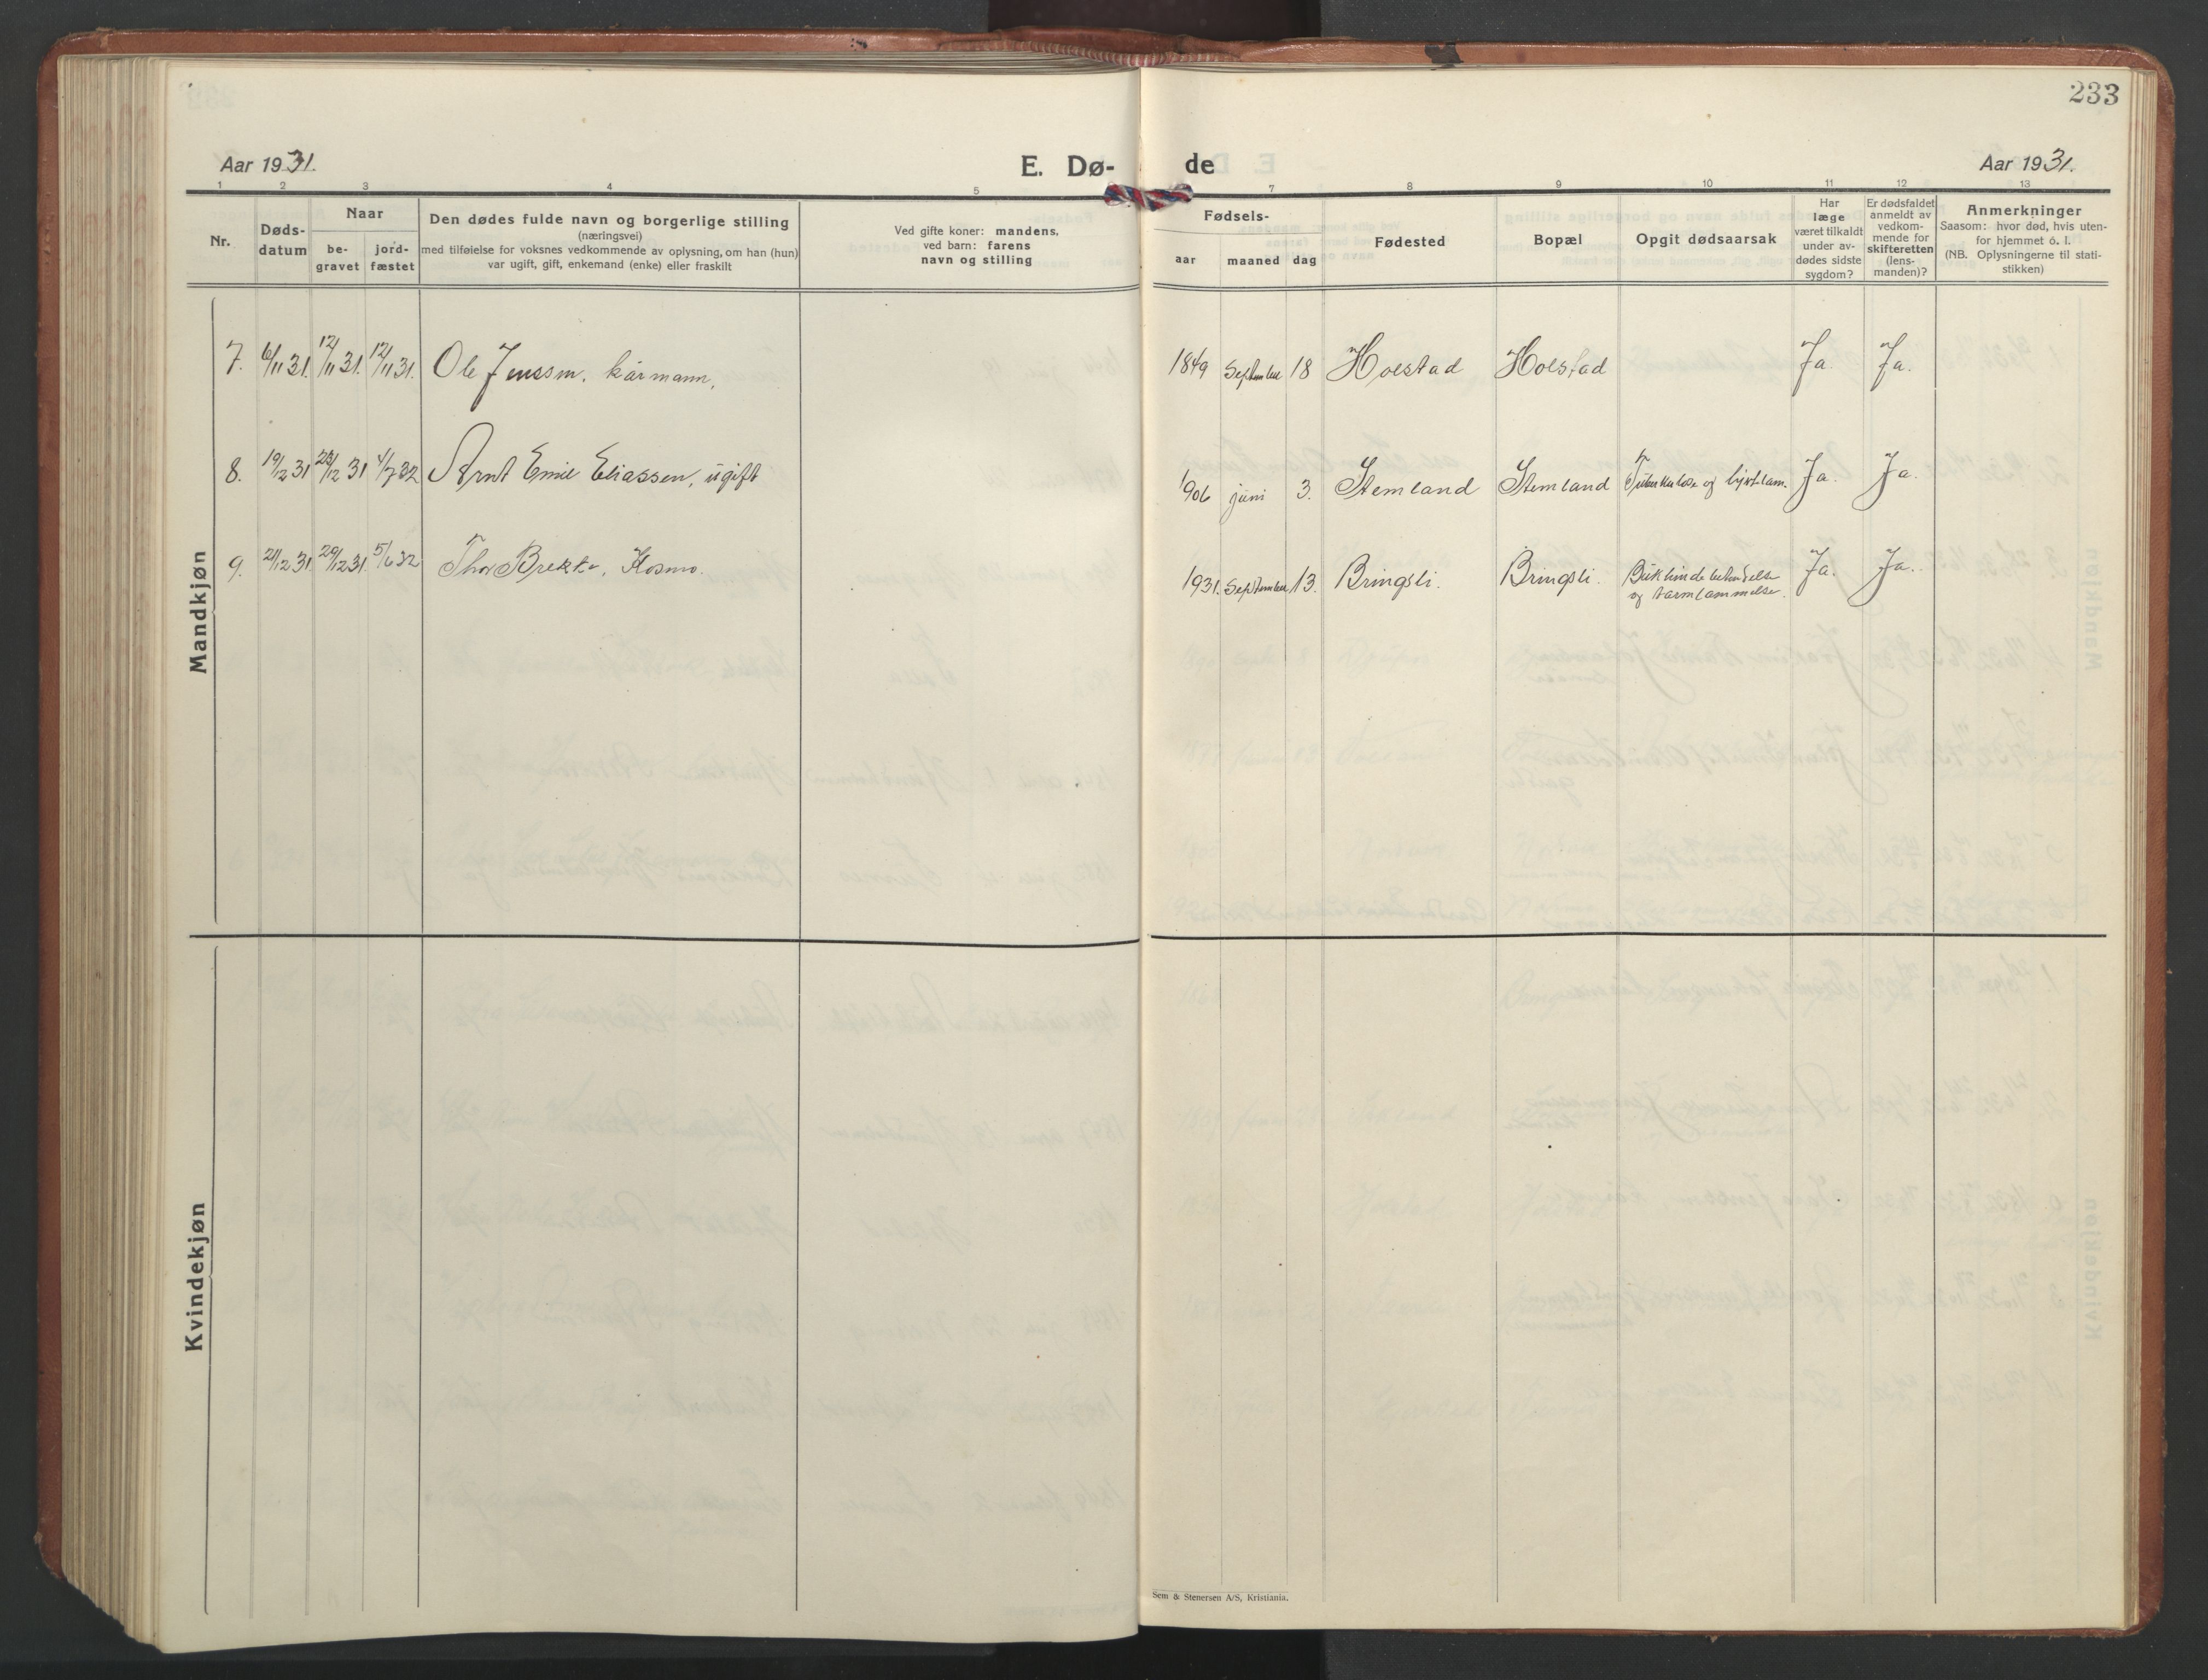 233
Aar 1931.
E. Dø-
de
Aar 1931.
1 2 3 4 5 7 8 9 10 11 12 13
Nr.
Døds-
datum
Naar
be-
gravet
jord-
fæstet
Den dødes fulde navn og borgerlige stilling
(næringsvei)
med tilføielse for voksnes vedkommende av oplysning, om han (hun)
var ugift, gift, enkemand (enke) eller fraskilt
Ved gifte koner: mandens,
ved barn: farens
navn og stilling
Fødsels-
aar maaned dag
Fødested
Bopæl
Opgit dødsaarsak
Har
læge
været tilkaldt
under av-
dødes sidste
sygdom?
Er dødsfaldet
anmeldt av
vedkom-
mende for
skifteretten
(lens-
manden)?
Anmerkninger
Saasom: hvor død, hvis uten-
for hjemmet o. l.
(NB. Oplysningerne til stati-
stikken)
Mandkjøn
7. 6/11 31. 12/11 31. 12/11 31. Ole Jenssen. kårmann. 1849 September 18 Holstad Holstad Ja. Ja.
8. 19/12 31 4/7 32 Arnt Emil Eliassen, ugift 1906 juni 3. Stemland Stemland Tuberkulose og Ja. Ja.
9. 29/12 31. 5/6 32 Thor Brekke, Kosmo. 1931. September 13. Bringsli. Bringsli. Ja. Ja.
og tarmlammelse.
Kvindekjøn
Sem & Stenersen A/S, Kristiania.